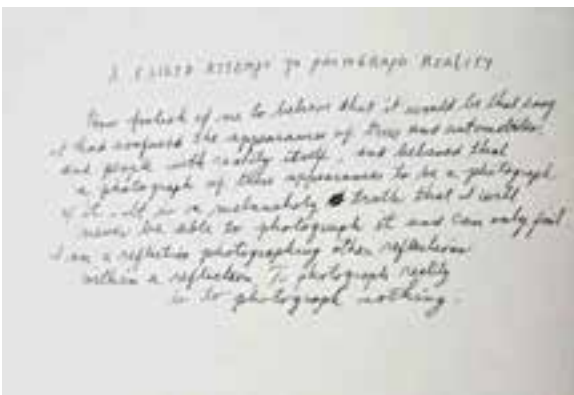 A FAILED ATTEMPT TO PHOTOGRAPH REALITY
How foolish of me to believe that it would be that easy
I had confused the appearances of trees and automobiles
and people with reality itself, and believed that
a photograph of these appearances to be a photograph
of it. It is a melancholy truth that I will
never be able to photograph it and can only fail.
I am a reflection photographing other reflections
within a reflection. To photograph reality
is to photograph nothing.